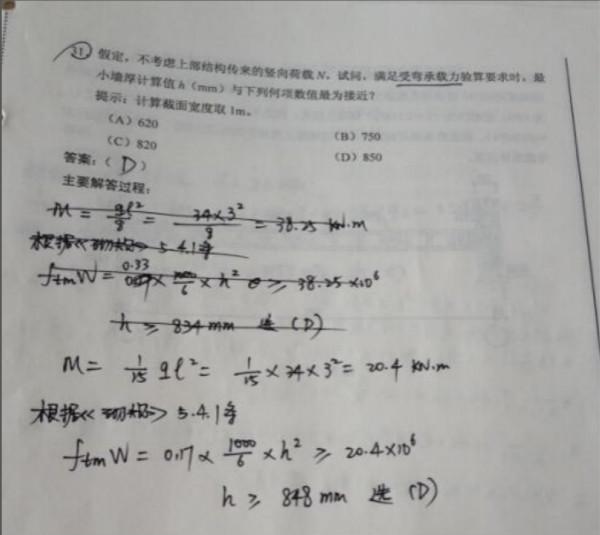 31. 假定，不考虑上部结构传来的竖向荷载N，试问，满足受弯承载力验算要求时，最
小墙厚计算值h（mm）与下列何项数值最为接近？
提示：计算截面宽度取1m。
（A）620
（B）750
（C）820
（D）850
答案：（D）
主要解答过程：
M = ql²/8 = 34×3²/8 = 38.25 kN·m
根据《砌规》5.4.1条
ftmW = 0.33 × 1000/6 × h² ≥ 38.25×10⁶
h ≥ 834 mm 选（D）
M = 1/15 ql² = 1/15 × 34 × 3² = 20.4 kN·m
根据《砌规》5.4.1条
ftmW = 0.17 × 1000/6 × h² ≥ 20.4×10⁶
h ≥ 848 mm 选（D）